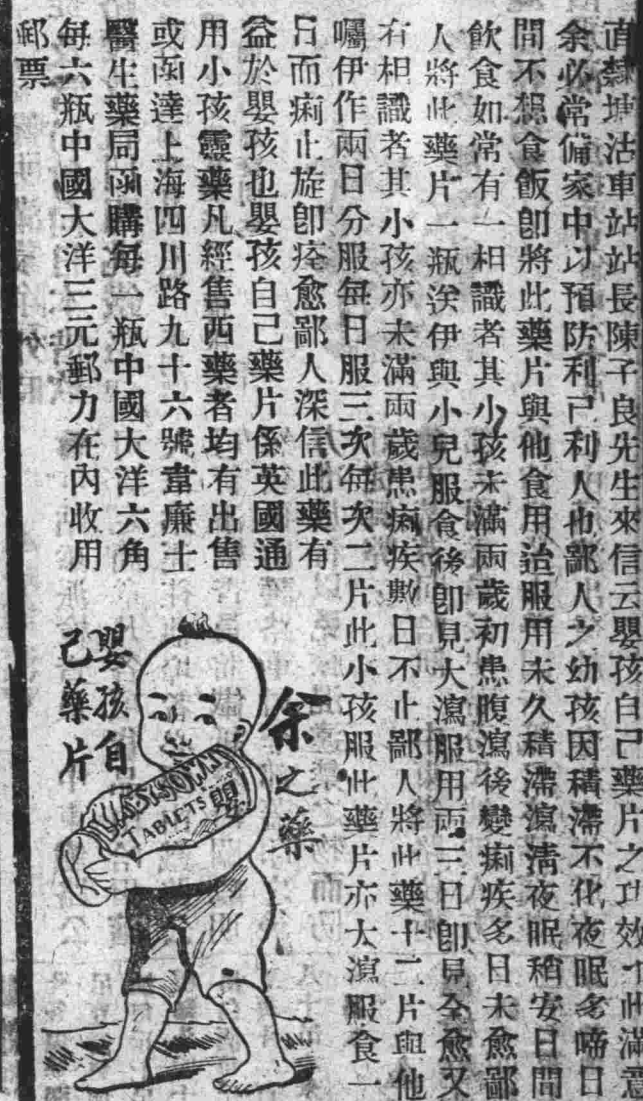 直隸塘沽車站站長陳子良先生來信云嬰孩自己藥片之功效十此滿意
余必常備家中以預防利己利人也鄙人之幼孩因積滯不化夜眠多啼日
間不想食飯卽將此藥片與他食用治服用未久積滯瀉淸夜眠稍安日間
飲食如常有一相識者其小孩未滿兩歲初患腹瀉後變痢疾多日未愈鄙
人將此藥片一瓶送伊與小兒服食後卽見大瀉服用兩三日卽見全愈又
有相識者其小孩亦未滿兩歲患痢疾數日不止鄙人將此藥十二片與他
囑伊作兩日分服每日服三次每次二片此小孩服此藥片亦大瀉服食一
日而痢止旋卽痊愈鄙人深信此藥有
益於嬰孩也嬰孩自己藥片係英國通
用小孩靈藥凡經售西藥者均有出售
或函達上海四川路九十六號韋廉士
醫生藥局函購每一瓶中國大洋六角
每六瓶中國大洋三元郵力在內收用
郵票
余之藥
嬰孩自
己藥片
TABLETS 嬰